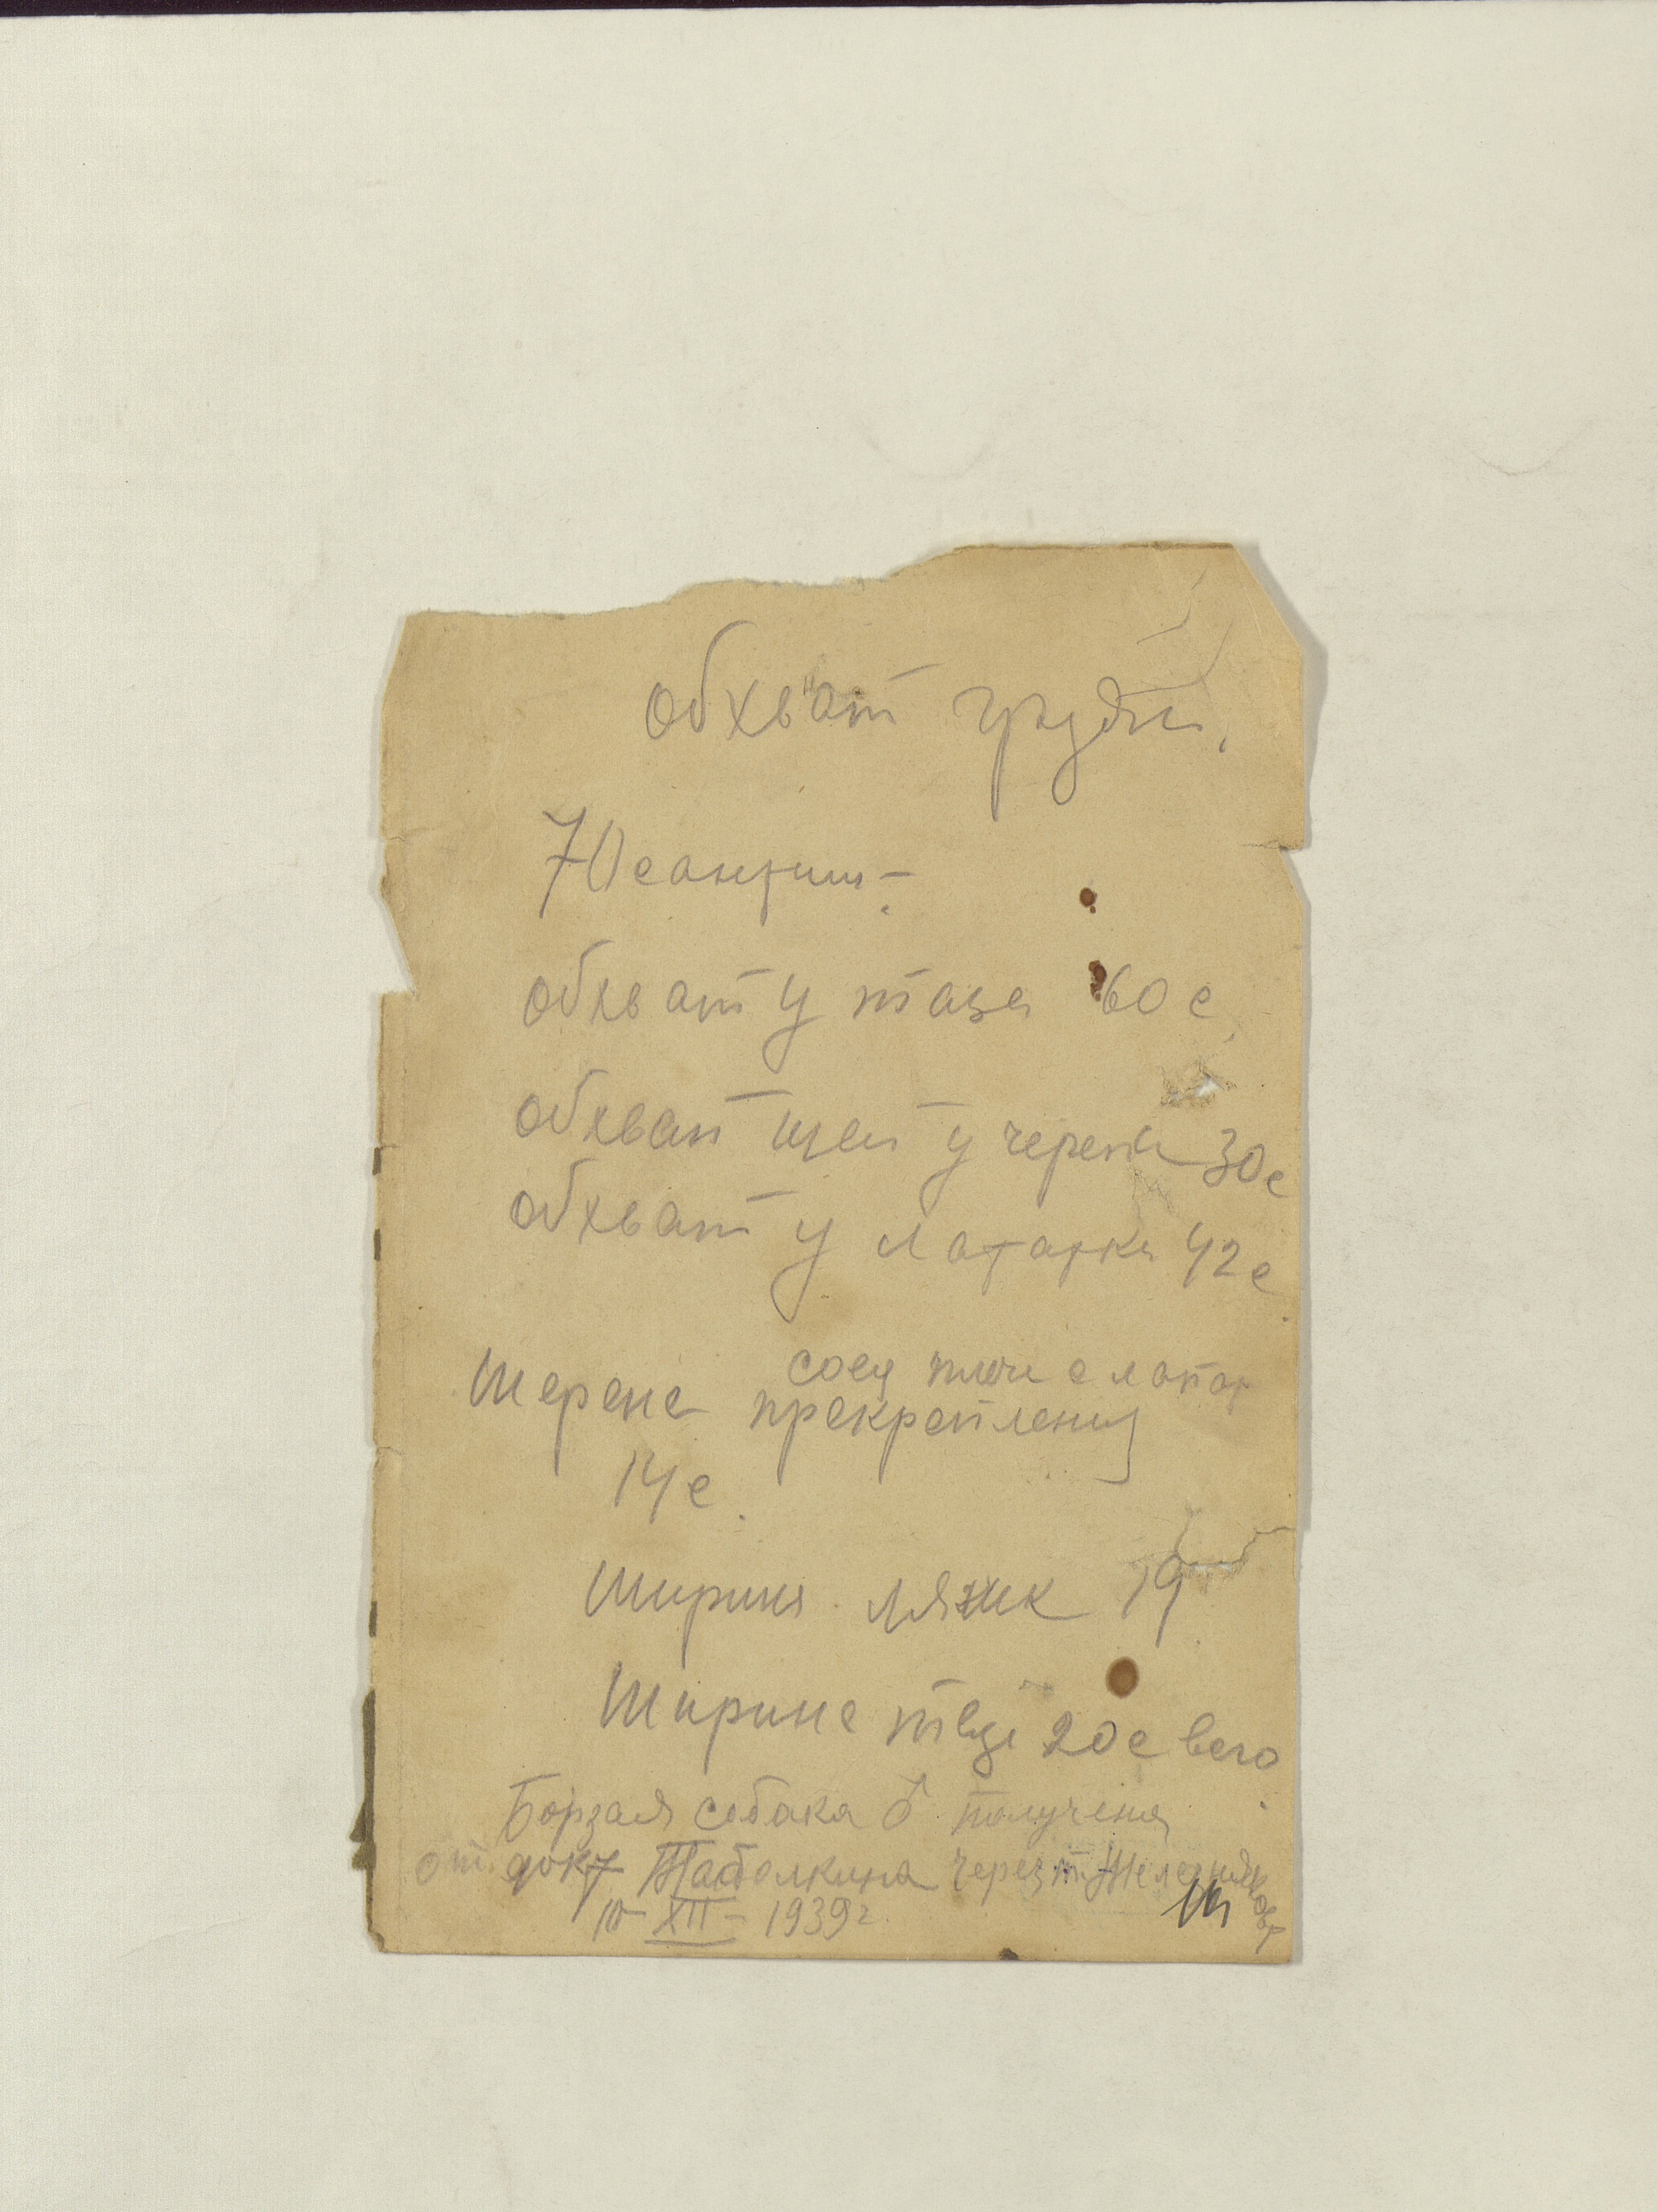 обхват груди.
70 сантим-
обхват у таза 60 с
обхват шеи у черепа 30 с
обхват у лопатки 42 с
соед плеч с лопат
Шерене прекрепления
14 с.
ширина ляжек 19
Ширине таза 20 с всего
Борзая собака ♂ получена
от Таболкина через т. Железнякова
XII - 1939 г.